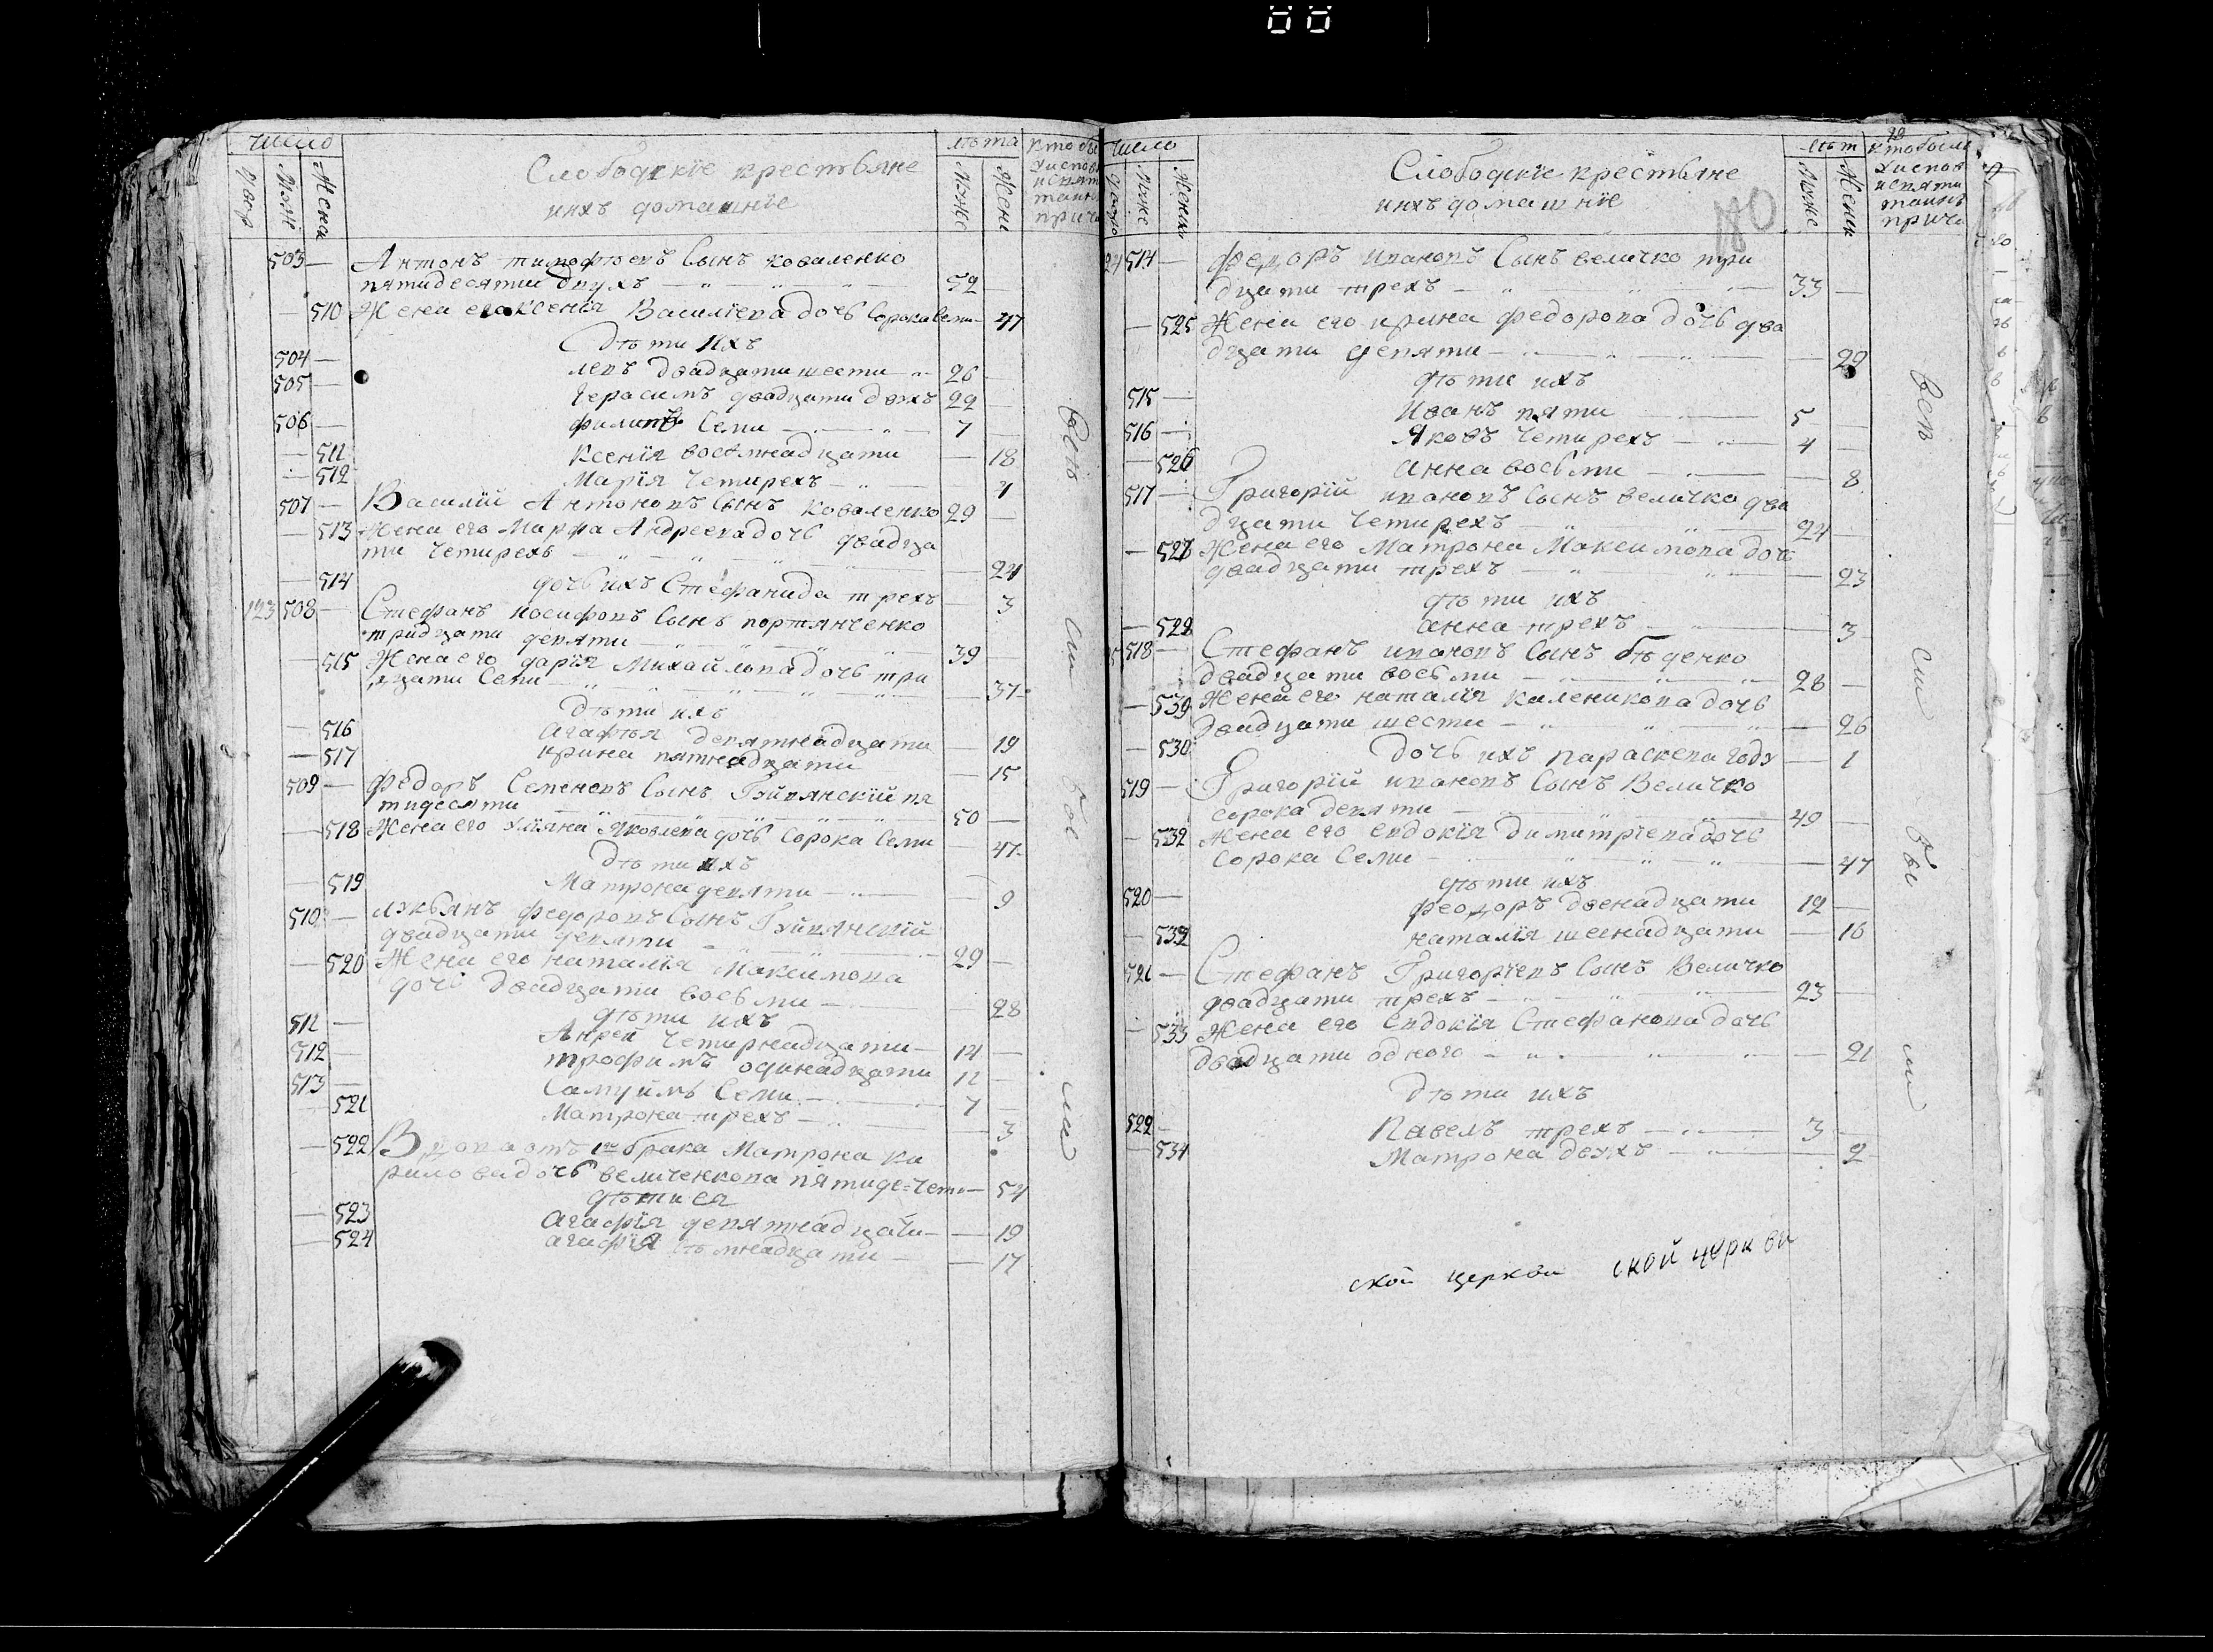 Число
Двор
Муже
Женск
Слободскіе крестьяне
ихъ домашніе
лѣта
Муже
Жени
503 — Антонъ тимофѣевъ Сынъ коваленко
пятидесяти двухъ — 52
— 510 Жена его ксенія Василіева дочь Сорока Семи — 47
Дѣти Ихъ
504 — левъ двадцати шести — 26
505 — Герасимъ двадцати двухъ 22
506 — филипъ Семи — 7
— 511 Ксенія восемнадцати — 18
— 512 Марія Четирехъ — 4
507 — Василій Антоновъ Сынъ коваленко 29 —
— 513 Жена его Марфа Андреева дочь двадца
ти Четирехъ — 24
— 514 дочь ихъ Стефанида трехъ — 3
123 508 — Стефанъ иосифовъ Сынъ портянченко
тридцати девяти — 39
— 515 Жена его дарія Михайлова дочь три
дцати Семи — 37
Дѣти ихъ
— 516 агафія девятнадцати — 19
— 517 ирина пятнадцати — 15
509 — федоръ Семеновъ Сынъ Гуйвянскій пя
тидесяти — 50 —
— 518 Жена его Уліяна Яковлева дочь Сорока Семи — 47
Дѣти ихъ
— 519 Матрона девяти — 9
510 — лукьянъ федоровъ Сынъ Гуйвянскій
двадцати девяти — 29 —
— 520 Жена его наталія Максимова
дочь двадцати восьми — 28
дѣти ихъ
511 — Анрей Четирнадцати — 14 —
512 — трофимъ одинадцати 11 —
513 — Самуилъ Семи — 7 —
— 521 Матрона трехъ — 3
— 522 Вдова отъ брака Матрона ки
рилова дочь величенкова пятиде=чети — 54
дѣти ея
— 523 агафія девятнадцати — 19
— 524 агафія семнадцати — 17
всѣ
сіи
бы
ли
Число
Муже
Женски
Слободскіе крестьяне
ихъ домашніе
180
лѣт
Муже
Женск
кто были
у испов
и святи
таинъ
причи
24 514 — федоръ ивановъ Сынъ величко три
дцати трехъ — 33 —
— 525 Жена его ирина федорова дочь два
дцати девяти — 29
дѣти ихъ
515 — Иванъ пяти — 5 —
516 — Яковъ Четирехъ — 4 —
— 526 анна восьми — 8
517 — Григорій ивановъ Сынъ величко два
дцати Четирехъ — 24 —
— 527 Жена его Матрона Максимова дочь
двадцати трехъ — 23
дѣти ихъ
— 528 анна трехъ — 3
518 — Стефанъ ивановъ Сынъ бѣденко
двадцати восьми — 28 —
— 539 Жена его наталія каленикова дочь
двадцати шести — 26
— 530 дочь ихъ параскева году — 1
519 — Григорій ивановъ Сынъ Величко
сорока девяти — 49 —
— 532 Жена его евдокія димитріева дочь
сорока Семи — 47
дѣти ихъ
520 — феодоръ двенадцати 12 —
— 532 наталія шеснадцати — 16
521 — Стефанъ Григоріевъ Сынъ Величко
двадцати трехъ — 23 —
— 533 Жена его евдокія Стефанова дочь
двадцати одного — 21
Дѣти ихъ
522 — Павелъ трехъ — 3 —
— 534 Матрона двухъ — 2
всѣ
сіи
бы
ли
ской церкви ской церкви